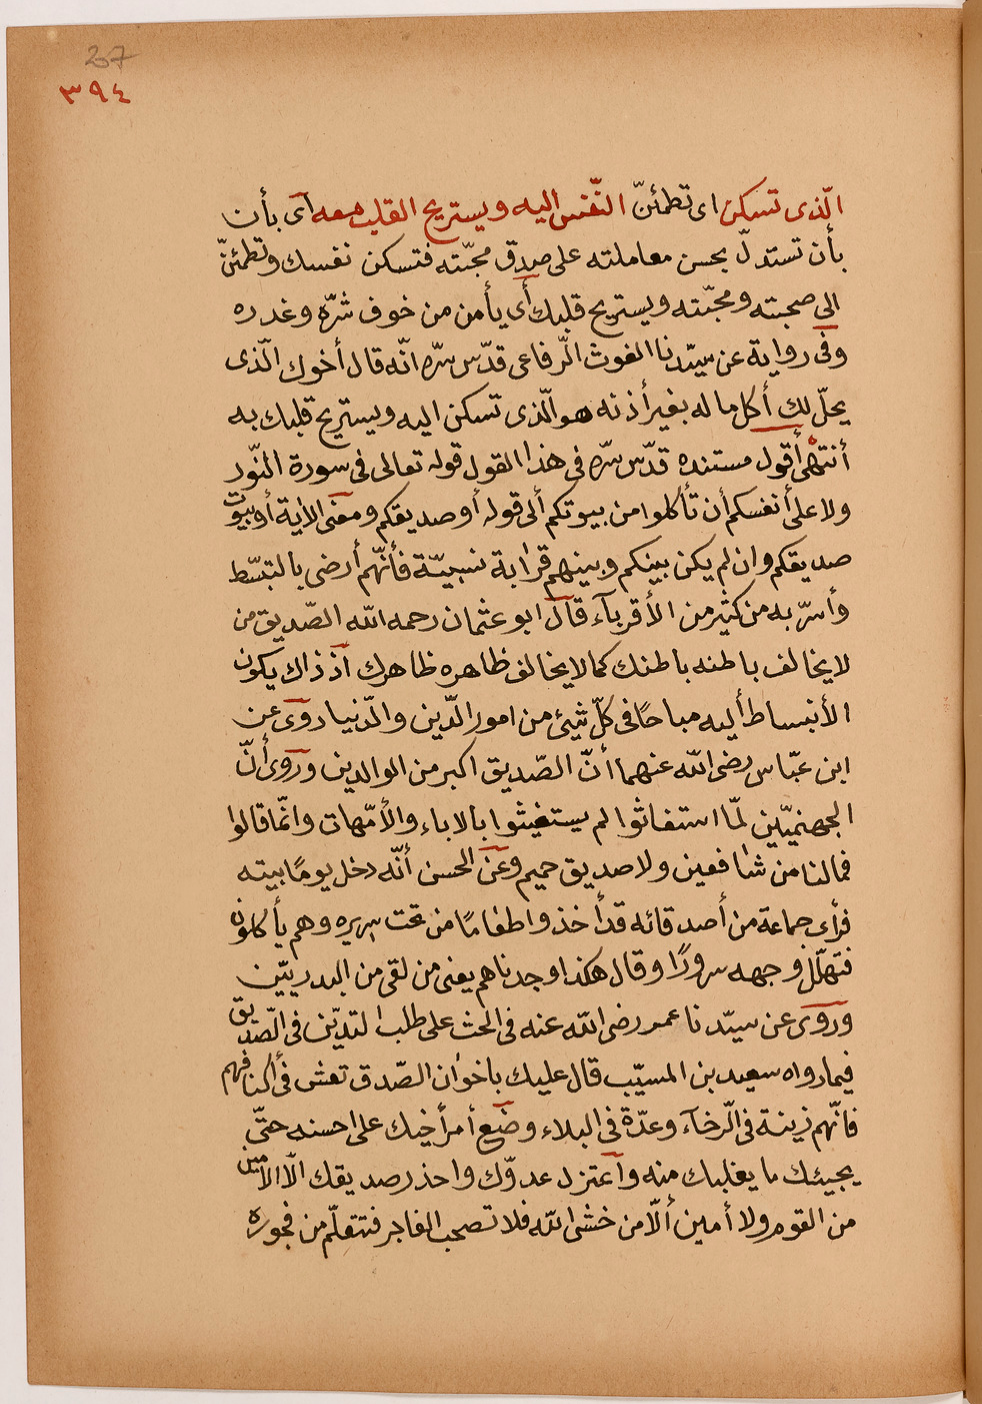 207
٣٩٤
الّذى تسكن اى تطمئنّ النّفس اليه ويستريح القلب معه اى بأن
بأن تستدلّ بحسن معاملته على صدق محبّته فتسكن نفسك وتطمئنّ
الى صحبته ومحبّته ويستريح قلبك أى يأمن من خوف شرّه وغدره
وفى رواية عن سيّدنا الغوث الرّفاعى قدّس سرّه انّه قال أخوك الّذى
يحلّ لك أكل ماله بغير أذنه هو الّذى تسكن اليه ويستريح قلبك به
أنتهى أقول مستنده قدّس سرّه فى هذا القول قوله تعالى فى سورة النّور
ولا على أنفسكم أن تأكلوا من بيوتكم ألى قوله أو صديقكم ومعنى الاية أو بيوت
صديقكم وان لم يكن بينكم وبينهم قرابة نسبيّة فأنّهم أرضى بالتبسّط
وأسرّ به من كثير من الأقربآء قال ابو عثمان رحمه الله الصّديق من
لا يخالف باطنه باطنك كما لا يخالف ظاهره ظاهرك اذ ذاك يكون
الأنبساط أليه مباحًا فى كلّ شيئ من امور الدّين والدّنيا روى عن
ابن عبّاس رضى الله عنهما أنّ الصّديق اكبر من الوالدين وروى أنّ
الجهنميّين لمّا استغاثوا لم يستغيثوا بالاباء والأمّهات وانّما قالوا
فمالنا من شافعين ولا صديق حميم وعن الحسن أنّه دخل يومًا بيته
فرأى جماعة من أصدقائه قد أخذوا طعامًا من تحت سريره وهم يأكلون
فتهلّل وجهه سرورًا وقال هكذا وجدناهم يعنى من لقى من البدريّين
وروى عن سيّدنا عمر رضى الله عنه فى الحث على طلب التديّن فى الصّديق
فيما رواه سعيد بن المسيّب قال عليك باخوان الصّدق تعش فى أكنافهم
فانّهم زينة فى الرّخآء وعدّة فى البلاء وضع أمر أخيك على احسنه حتّى
يجيئك ما يغلبك منه واعتزل عدوّك واحذر صديقك الّا الأمين
من القوم ولا أمين ألّا من خشى الله فلا تصحب الفاجر فتتعلّم من فجوره